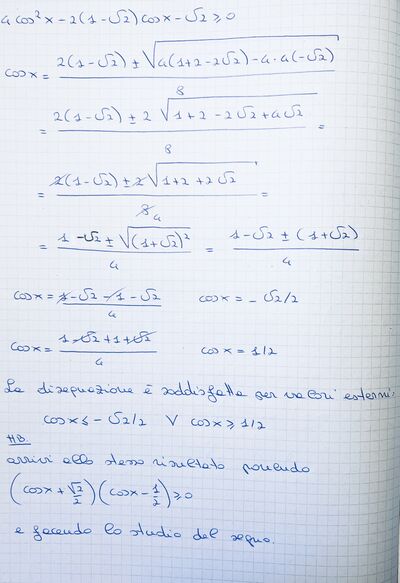 4 cos²x - 2(1-√2) cos x - √2 ≥ 0
cos x = (2(1-√2) ± √(4(1+2-2√2) - 4·4(-√2))) / 8
= (2(1-√2) ± 2 √(1+2-2√2+4√2)) / 8 =
= (2(1-√2) ± 2√(1+2+2√2)) / 8 4 =
= (1-√2 ± √((1+√2)²)) / 4 = (1-√2 ± (1+√2)) / 4
cos x = (1-√2-1-√2) / 4 cos x = -√2/2
cos x = (1-√2+1+√2) / 4 cos x = 1/2
La disequazione è soddisfatta per valori esterni:
cos x ≤ -√2/2 V cos x ≥ 1/2
NB.
arrivi allo stesso risultato ponendo
(cos x + √2/2)(cos x - 1/2) ≥ 0
e facendo lo studio del segno.